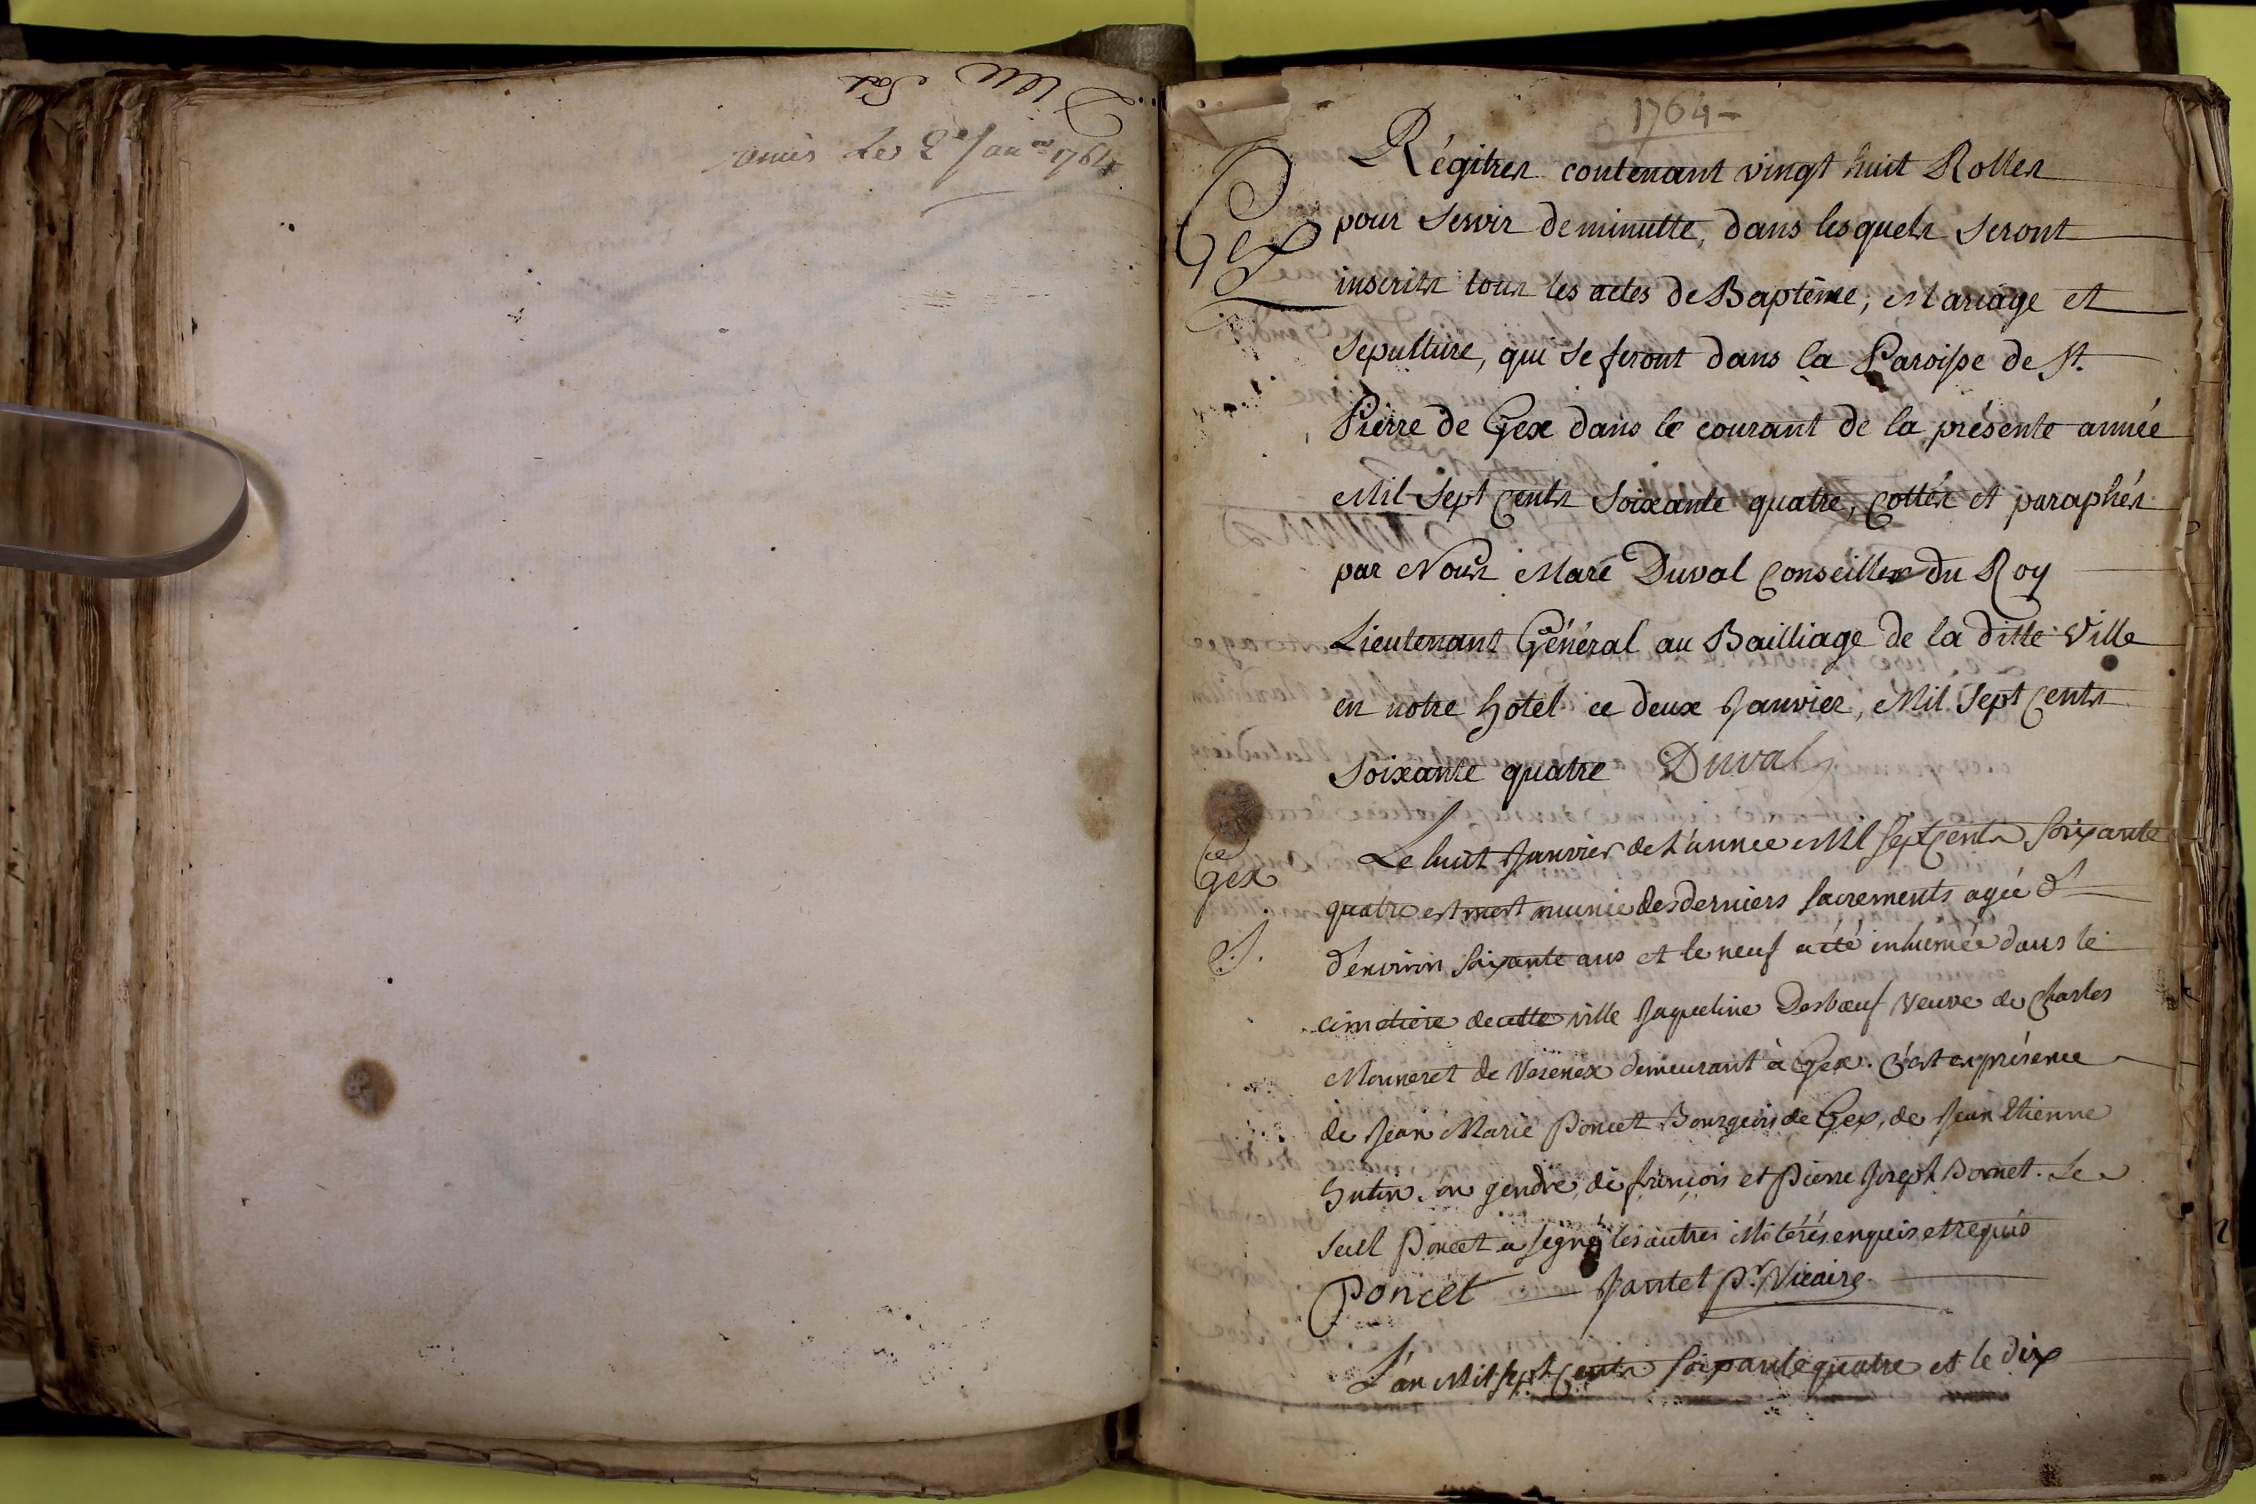 remis Le 2e Janer 1764
1764
Gex
Régitres contenant vingt huit Rolles
pour servir de minutte, dans lesquels seront
inscrits tous les actes de Baptême, Mariage et
Sepulture, qui se feront dans la Paroisse de St.
Pierre de Gex dans le courant de la présente année
Mil sept Cents soixante quatre, Cottés et paraphés
par Nous Marc Duval Conseiller du Roy
Lieutenant Général au Bailliage de la ditte Ville
en notre hotel ce deux Janvier, Mil sept Cents
soixante quatre Duval
Gex
S.
Le huit Janvier de L'année Mil sept Cents soixante
quatre est mort munie des derniers sacrements agée d
d'environ soixante ans et le neuf a été inhumée dans le
cimetiere de cette ville Jaqueline Desbœuf veuve de Charles
Monneret de Vesenex demeurant à Gex. C'est en présence
de Jean Marie Poncet Bourgeois de Gex, de Jean Etienne
hutin son gendre, de françois et Pierre Joseph Bornet. Le
seul Poncet a signé les autres illitérés enquis et requis
Poncet Jantet pr. Vicaire
L'an Mil sept Cents soixante quatre et le dix